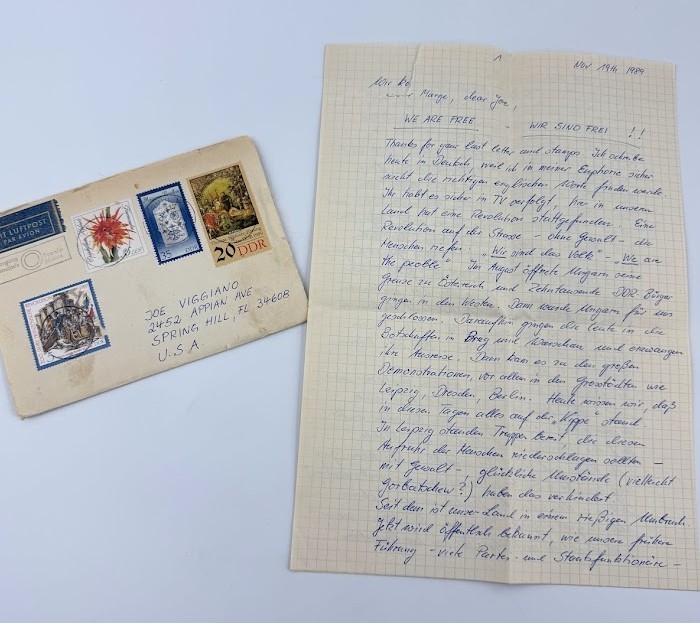 MIT LUFTPOST
PAR AVION
DDR
35 DDR
20 DDR
JOE VIGGIANO
2452 APPIAN AVE
SPRING HILL, FL 34608
U.S.A.
1
Nov. 19th 1989
Marge, dear Joe,
WE ARE FREE - WIR SIND FREI !!
Thanks for your last letter and stamps. Ich schreibe
heute in Deutsch, weil ich in meiner Euphorie sicher
nicht die richtigen englischen Worte finden werde.
Ihr habt es sicher in TV verfolgt, hier in unserem
Land hat eine Revolution stattgefunden. Eine
Revolution auf der Strasse - ohne Gewalt - die
Menschen riefen "Wir sind das Volk" - "We are
the people". Im August öffnete Ungarn seine
Grenze zu Österreich und Zehntausende DDR-Bürger
gingen in den Westen. Dann wurde Ungarn für uns
geschlossen. Daraufhin gingen die Leute in die
Botschaften in Prag und Warschau und erzwangen
ihre Ausreise. Dann kam es zu den großen
Demonstrationen, vor allem in den Grosstädten wie
Leipzig, Dresden, Berlin. Heute wissen wir, daß
in diesen Tagen alles auf der "Kippe" stand.
In Leipzig standen Truppen bereit, die diesen
Aufruhr der Menschen niederschlagen sollten -
mit Gewalt -, glückliche Umstände (vielleicht
Gorbatschow?) haben das verhindert.
Seit dem ist unser Land in einem rießigen Umbruch.
Jetzt wird öffentlich bekannt, wie unsere frühere
Führung - viele Partei- und Staatsfunktionäre -